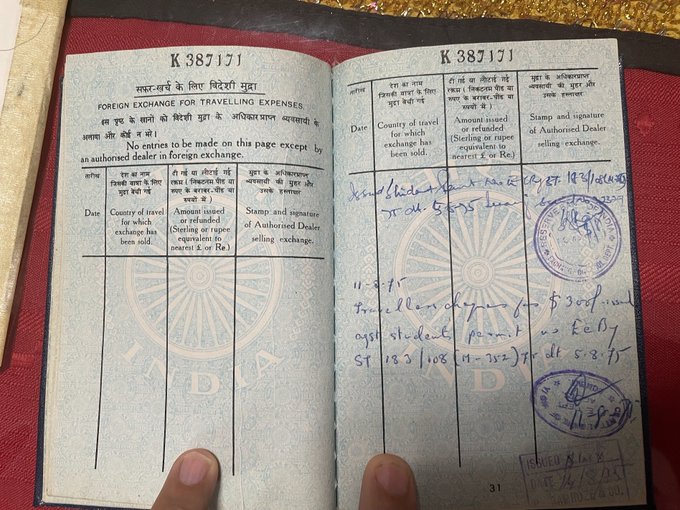 K 387171
सफ़र-खर्च के लिए विदेशी मुद्रा
FOREIGN EXCHANGE FOR TRAVELLING EXPENSES.
इस पृष्ठ के खानों को विदेशी मुद्रा के अधिकारप्राप्त व्यवसायी के
अलावा और कोई न भरे।
No entries to be made on this page except by
an authorised dealer in foreign exchange.
तारीख
देश का नाम
जिसकी यात्रा के लिए
मुद्रा बेची गई
दी गई या लौटाई गई
रकम (निकटतम पौंड या
रुपए के बराबर-पौंड या
रुपयों में)
मुद्रा के अधिकारप्राप्त
व्यवसायी की मुहर और
उसके हस्ताक्षर
Date
Country of travel
for which
exchange has
been sold.
Amount issued
or refunded
(Sterling or rupee
equivalent to
nearest £ or Re.)
Stamp and signature
of Authorised Dealer
selling exchange.
INDIA
K 387171
तारीख
देश का नाम
जिसकी यात्रा के लिए
मुद्रा बेची गई
दी गई या लौटाई गई
रकम (निकटतम पौंड या
रुपए के बराबर-पौंड या
रुपयों में)
मुद्रा के अधिकारप्राप्त
व्यवसायी की मुहर और
उसके हस्ताक्षर
Date
Country of travel
for which
exchange has
been sold.
Amount issued
or refunded
(Sterling or rupee
equivalent to
nearest £ or Re.)
Stamp and signature
of Authorised Dealer
selling exchange.
Issued Student
RESERVE INDIA
11-8-75
Travellers cheques for $ 300/- issued
agst students permit no EC BY
ST 183/108 (M-352) 75 dt 5.8.75
INDIA
ISSUED
DATE 14/8/75
31